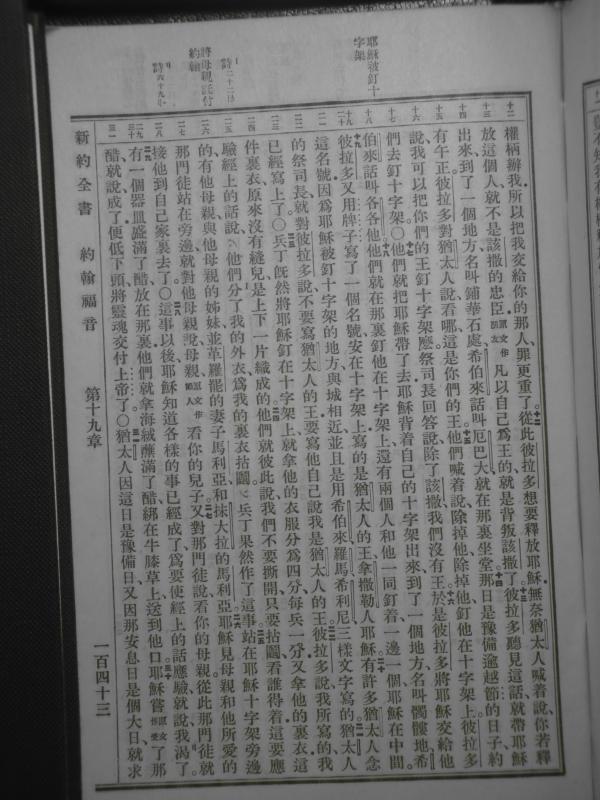 耶穌被釘十
字架
詩二十二
將母親託付
約翰
詩六十九
權柄辦我所以把我交給你的那人罪更重了從此彼拉多想要釋放耶穌無奈猶太人喊着說你若釋
放這個人就不是該撒的忠臣原文作朋友凡以自己爲王的就是背叛該撒了彼拉多聽見這話就帶耶穌
出來到了一個地方名叫鋪華石處希伯來話叫厄巴大就在那裏坐堂那日是豫備逾越節的日子約
有午正彼拉多對猶太人說看哪這是你們的王他們喊着說除掉他除掉他釘他在十字架上彼拉多
說我可以把你們的王釘十字架麽祭司長回答說除了該撒我們沒有王於是彼拉多將耶穌交給他
們去釘十字架〇他們就把耶穌帶了去耶穌背着自己的十字架出來到了一個地方名叫髑髏地希
伯來話叫各各他他們就在那裏釘他在十字架上還有兩個人和他一同釘着一邊一個耶穌在中間
彼拉多又用牌子寫了一個名號安在十字架上寫的是猶太人的王拿撒勒人耶穌有許多猶太人念
這名號因爲耶穌被釘十字架的地方與城相近並且是用希伯來羅馬希利尼三樣文字寫的猶太人
的祭司長就對彼拉多說不要寫猶太人的王要寫他自己說我是猶太人的王彼拉多說我所寫的我
已經寫上了〇兵丁旣然將耶穌釘在十字架上就拿他的衣服分爲四分每兵一分又拿他的裏衣這
件裏衣原來沒有縫兒是上下一片織成的他們就彼此說我們不要撕開只要拈鬮看誰得着這要應
驗經上的話說他們分了我的外衣爲我的裏衣拈鬮兵丁果然作了這事站在耶穌十字架旁邊
的有他母親與他母親的姊妹並革羅罷的妻子馬利亞和抹大拉的馬利亞耶穌見母親和他所愛的
那門徒站在旁邊就對他母親說母親原文作婦人看你的兒子又對那門徒說看你的母親從此那門徒就
接他到自己家裏去了〇這事以後耶穌知道各樣的事已經成了爲要使經上的話應驗就說我渴了
有一個器皿盛滿了醋放在那裏他們就拿海絨蘸滿了醋綁在牛膝草上送到他口耶穌嘗原文作受了那
醋就說成了便低下頭將靈魂交付上帝了〇猶太人因這日是豫備日又因那安息日是個大日就求
新約全書 約翰福音 第十九章 一百四十三